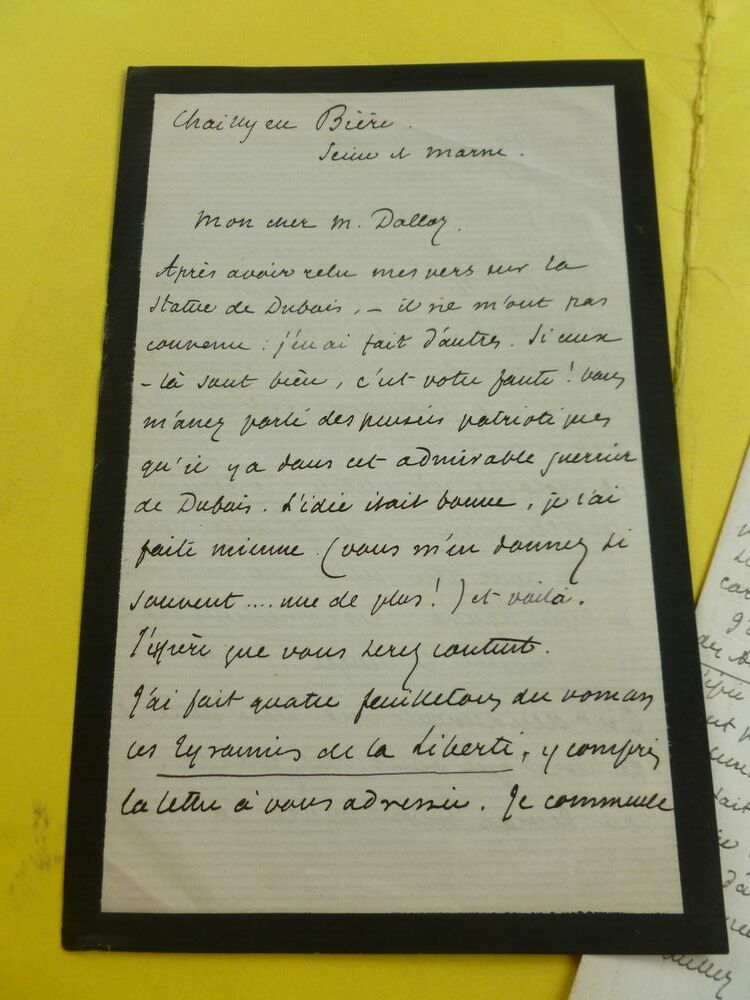 Chailly en Bière.
Seine et Marne.
Mon cher M. Dalloz.
Après avoir relu mes vers sur la
statue de Dubois, – il ne m'ont pas
convenu : j'en ai fait d'autres. Si ceux
-là sont bien, c'est votre faute ! vous
m'avez parlé des pensées patriotiques
qu'il y a dans cet admirable guerrier
de Dubois. L'idée était bonne, je l'ai
faite mienne (vous m'en donnez si
souvent .... une de plus ! ) et voilà.
J'espère que vous serez content.
J'ai fait quatre feuilletons du roman
les Tyrannies de la Liberté, y compris
la lettre à vous adressée. Je commence